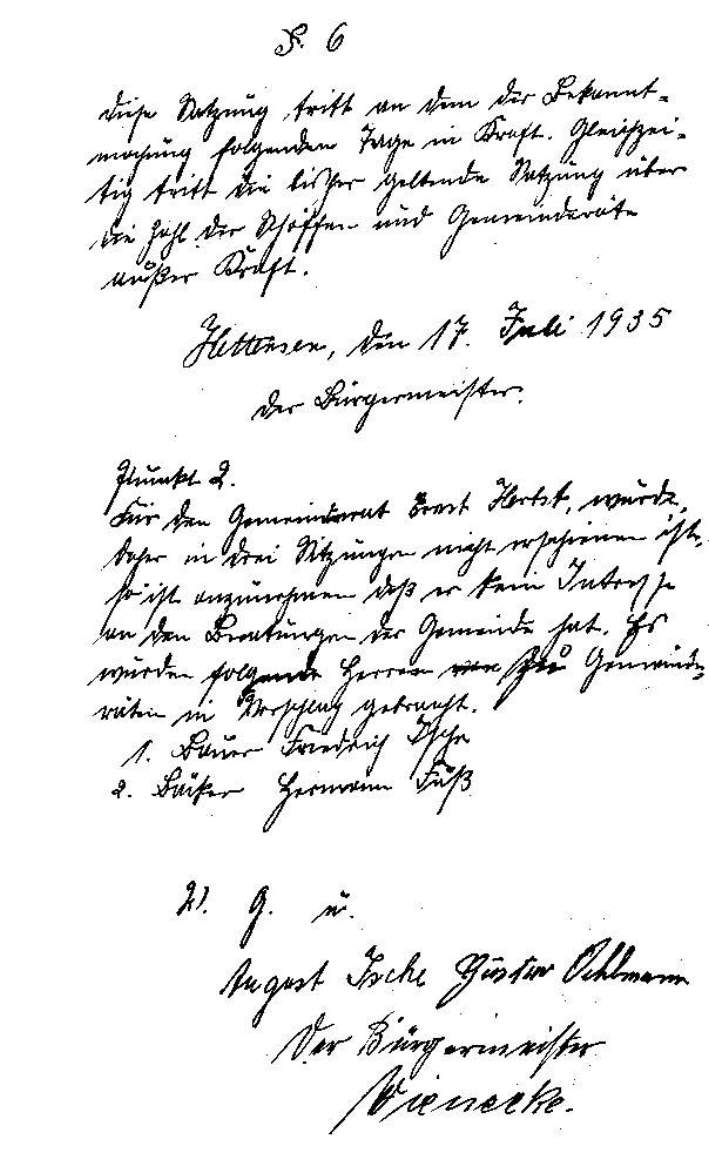 §. 6
Diese Satzung tritt an dem der Bekannt-
machung folgenden Tage in Kraft. Gleichzei-
tig tritt die bisher geltende Satzung über
die Zahl der Schöffen und Gemeinderäte
außer Kraft.
Hettensen, den 17. Juli 1935
Der Bürgermeister.
Punkt 2.
Für den Gemeinderat Ernst Herbst, wurde,
daher in drei Sitzungen nicht erschienen ist,
so ist anzunehmen daß er kein Intresse
an den Beratungen der Gemeinde hat. Es
wurden folgende Herren zu Gemeinde-
räten in Vorschlag gebracht.
1. Bauer Friedrich Ische
2. Bäcker Hermann Fuß
V. G. U.
August Ische Gustav Oehlmann
Der Bürgermeister
Wienecke.